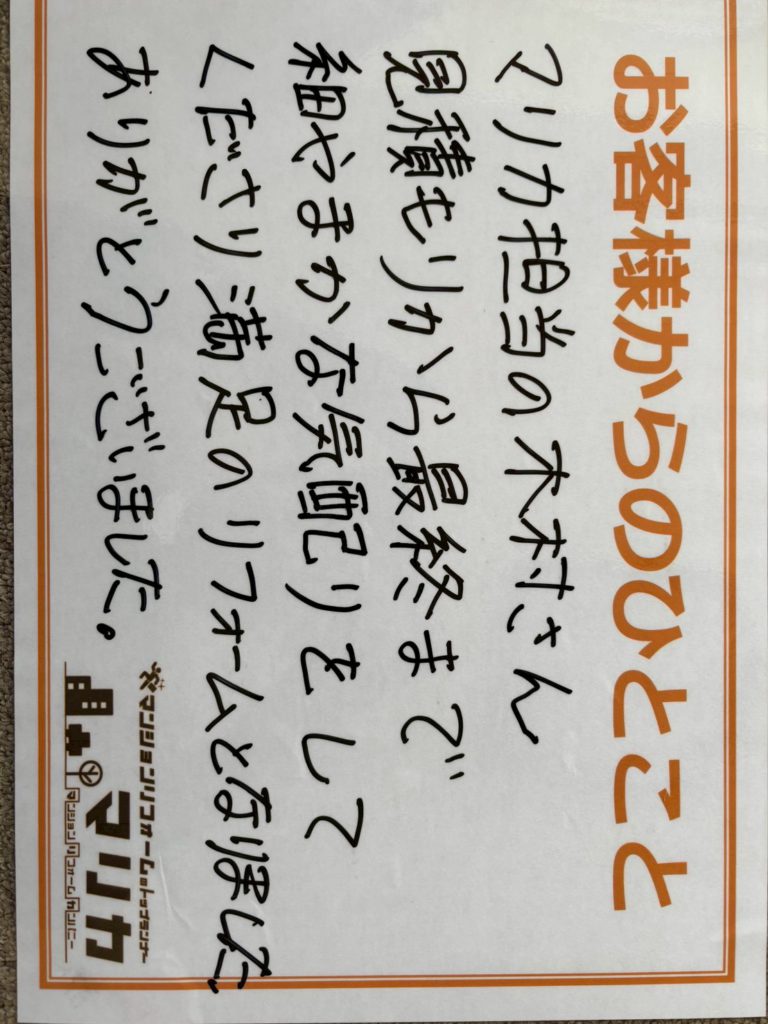 お客様からのひとこと
マリカ担当の木村さん
見積もりから最終まで
細やまかな気配りをして
くださり満足のリフォームとなりました。
ありがとうございました。
マンションリフォームのトップランナー
マリカ
マンションリフォームカンパニー